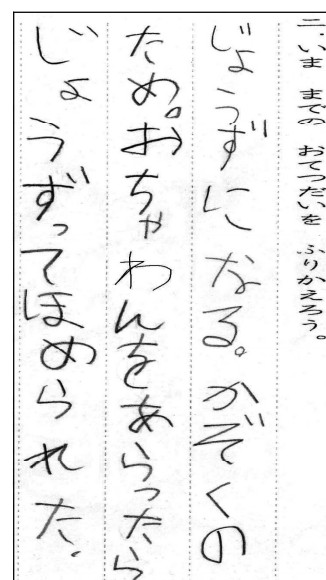 二、いま までの おてつだいを ふりかえろう。
じょうずに なる。かぞくの
ため。おちゃわんをあらったら
じょうずってほめられた。